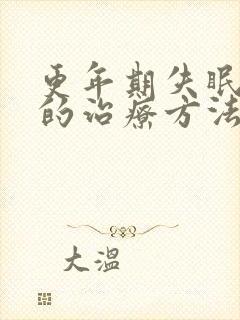 更年期失眠
的治疗方法
大温